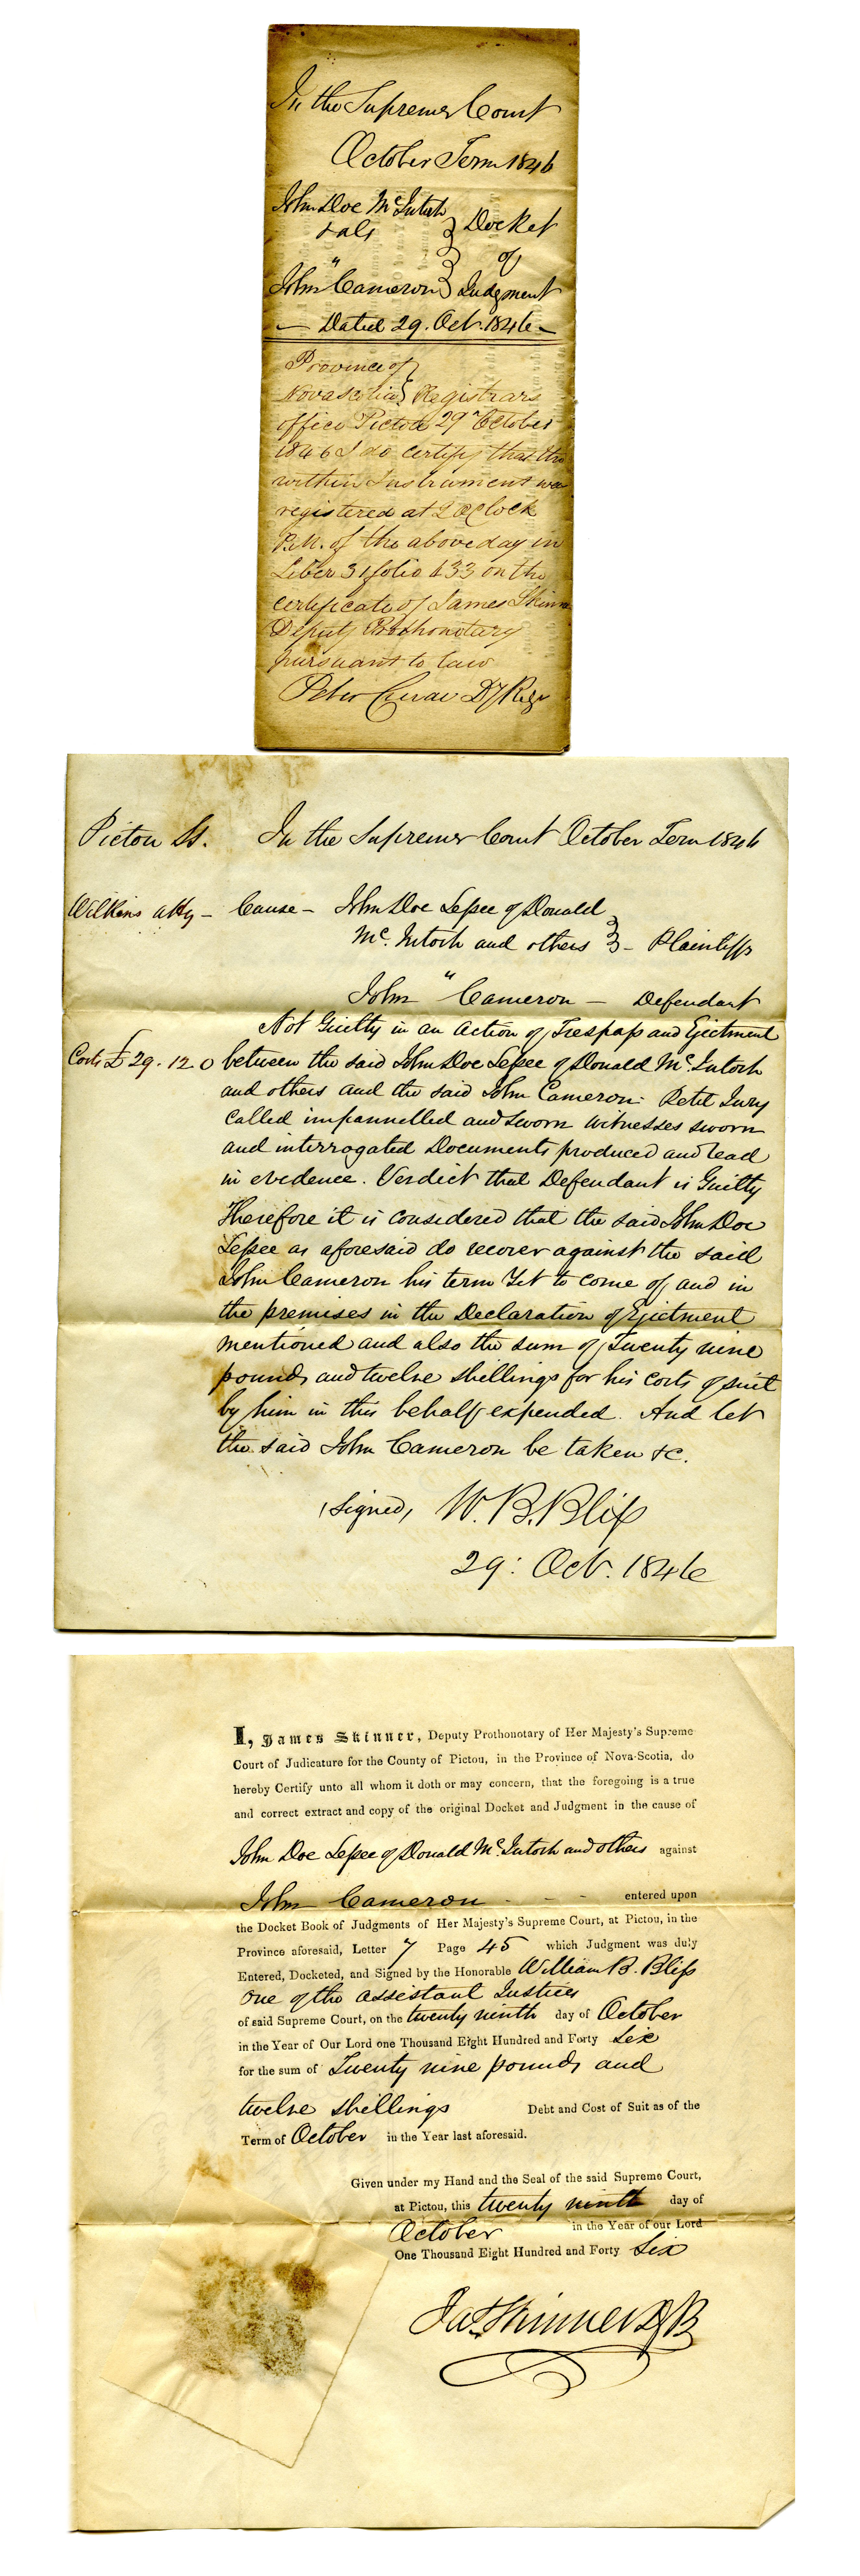 In the Supreme Court
October Term 1846
John Doe McIntosh
& als
" 
John Cameron
Docket
of
Judgment
— Dated 29. Oct. 1846 —
Province of
Novascotia } Registrars
office Pictou 29th October
1846 I do certify that the
within Instrument was
registered at 2 OClock
P.M. of the above day in
Liber 31 folio 433 on the
certificate of James Skinner
Deputy Prothonotary
pursuant to law
Peter Crerar Dy Regr
Pictou Ss. In the Supreme Court October Term 1846
Wilkins atty – Cause – John Doe Lessee of Donald
Mc.Intosh and others } – Plaintiffs
"
John Cameron – Defendant
Not Guilty in an action of Trespass and Ejectment
Costs £29.12.0 between the said John Doe Lessee of Donald Mc.Intosh
and others and the said John Cameron. Petit Jury
called impannelled and sworn witnesses sworn
and interrogated Documents produced and read
in evidence. Verdict that Defendant is Guilty
Therefore it is considered that the said John Doe
Lessee as aforesaid do recover against the said
John Cameron his term Yet to come of and in
the premises in the Declaration of Ejectment
mentioned and also the sum of Twenty nine
pounds and twelve shillings for his costs of suit
by him in this behalf expended. And let
the said John Cameron be taken &c.
(signed) W. B. Bliss
29: Oct. 1846
I, James Skinner, Deputy Prothonotary of Her Majesty's Supreme
Court of Judicature for the County of Pictou, in the Province of Nova-Scotia, do
hereby Certify unto all whom it doth or may concern, that the foregoing is a true
and correct extract and copy of the original Docket and Judgment in the cause of
John Doe Lessee of Donald Mc.Intosh and others against
John Cameron - - - entered upon
the Docket Book of Judgments of Her Majesty's Supreme Court, at Pictou, in the
Province aforesaid, Letter 7 Page 45 which Judgment was duly
Entered, Docketed, and Signed by the Honorable William B. Bliss
one of the assistant Justices
of said Supreme Court, on the twenty ninth day of October
in the Year of Our Lord one Thousand Eight Hundred and Forty Six
for the sum of Twenty nine pounds and
twelve shillings Debt and Cost of Suit as of the
Term of October in the Year last aforesaid.
Given under my Hand and the Seal of the said Supreme Court,
at Pictou, this twenty ninth day of
October in the Year of our Lord
One Thousand Eight Hundred and Forty Six
Jas. Skinner